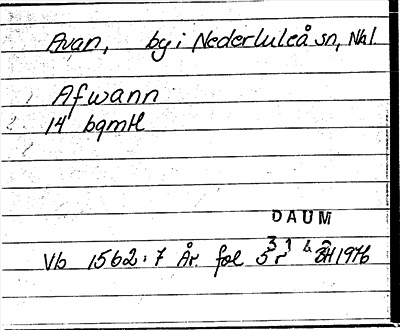 Avan, by i Nederluleå sn, Nbl.
Afwann
14 bqmtl
DAUM
Vb 1562:7 År. fol 5r
31 & BH 1976